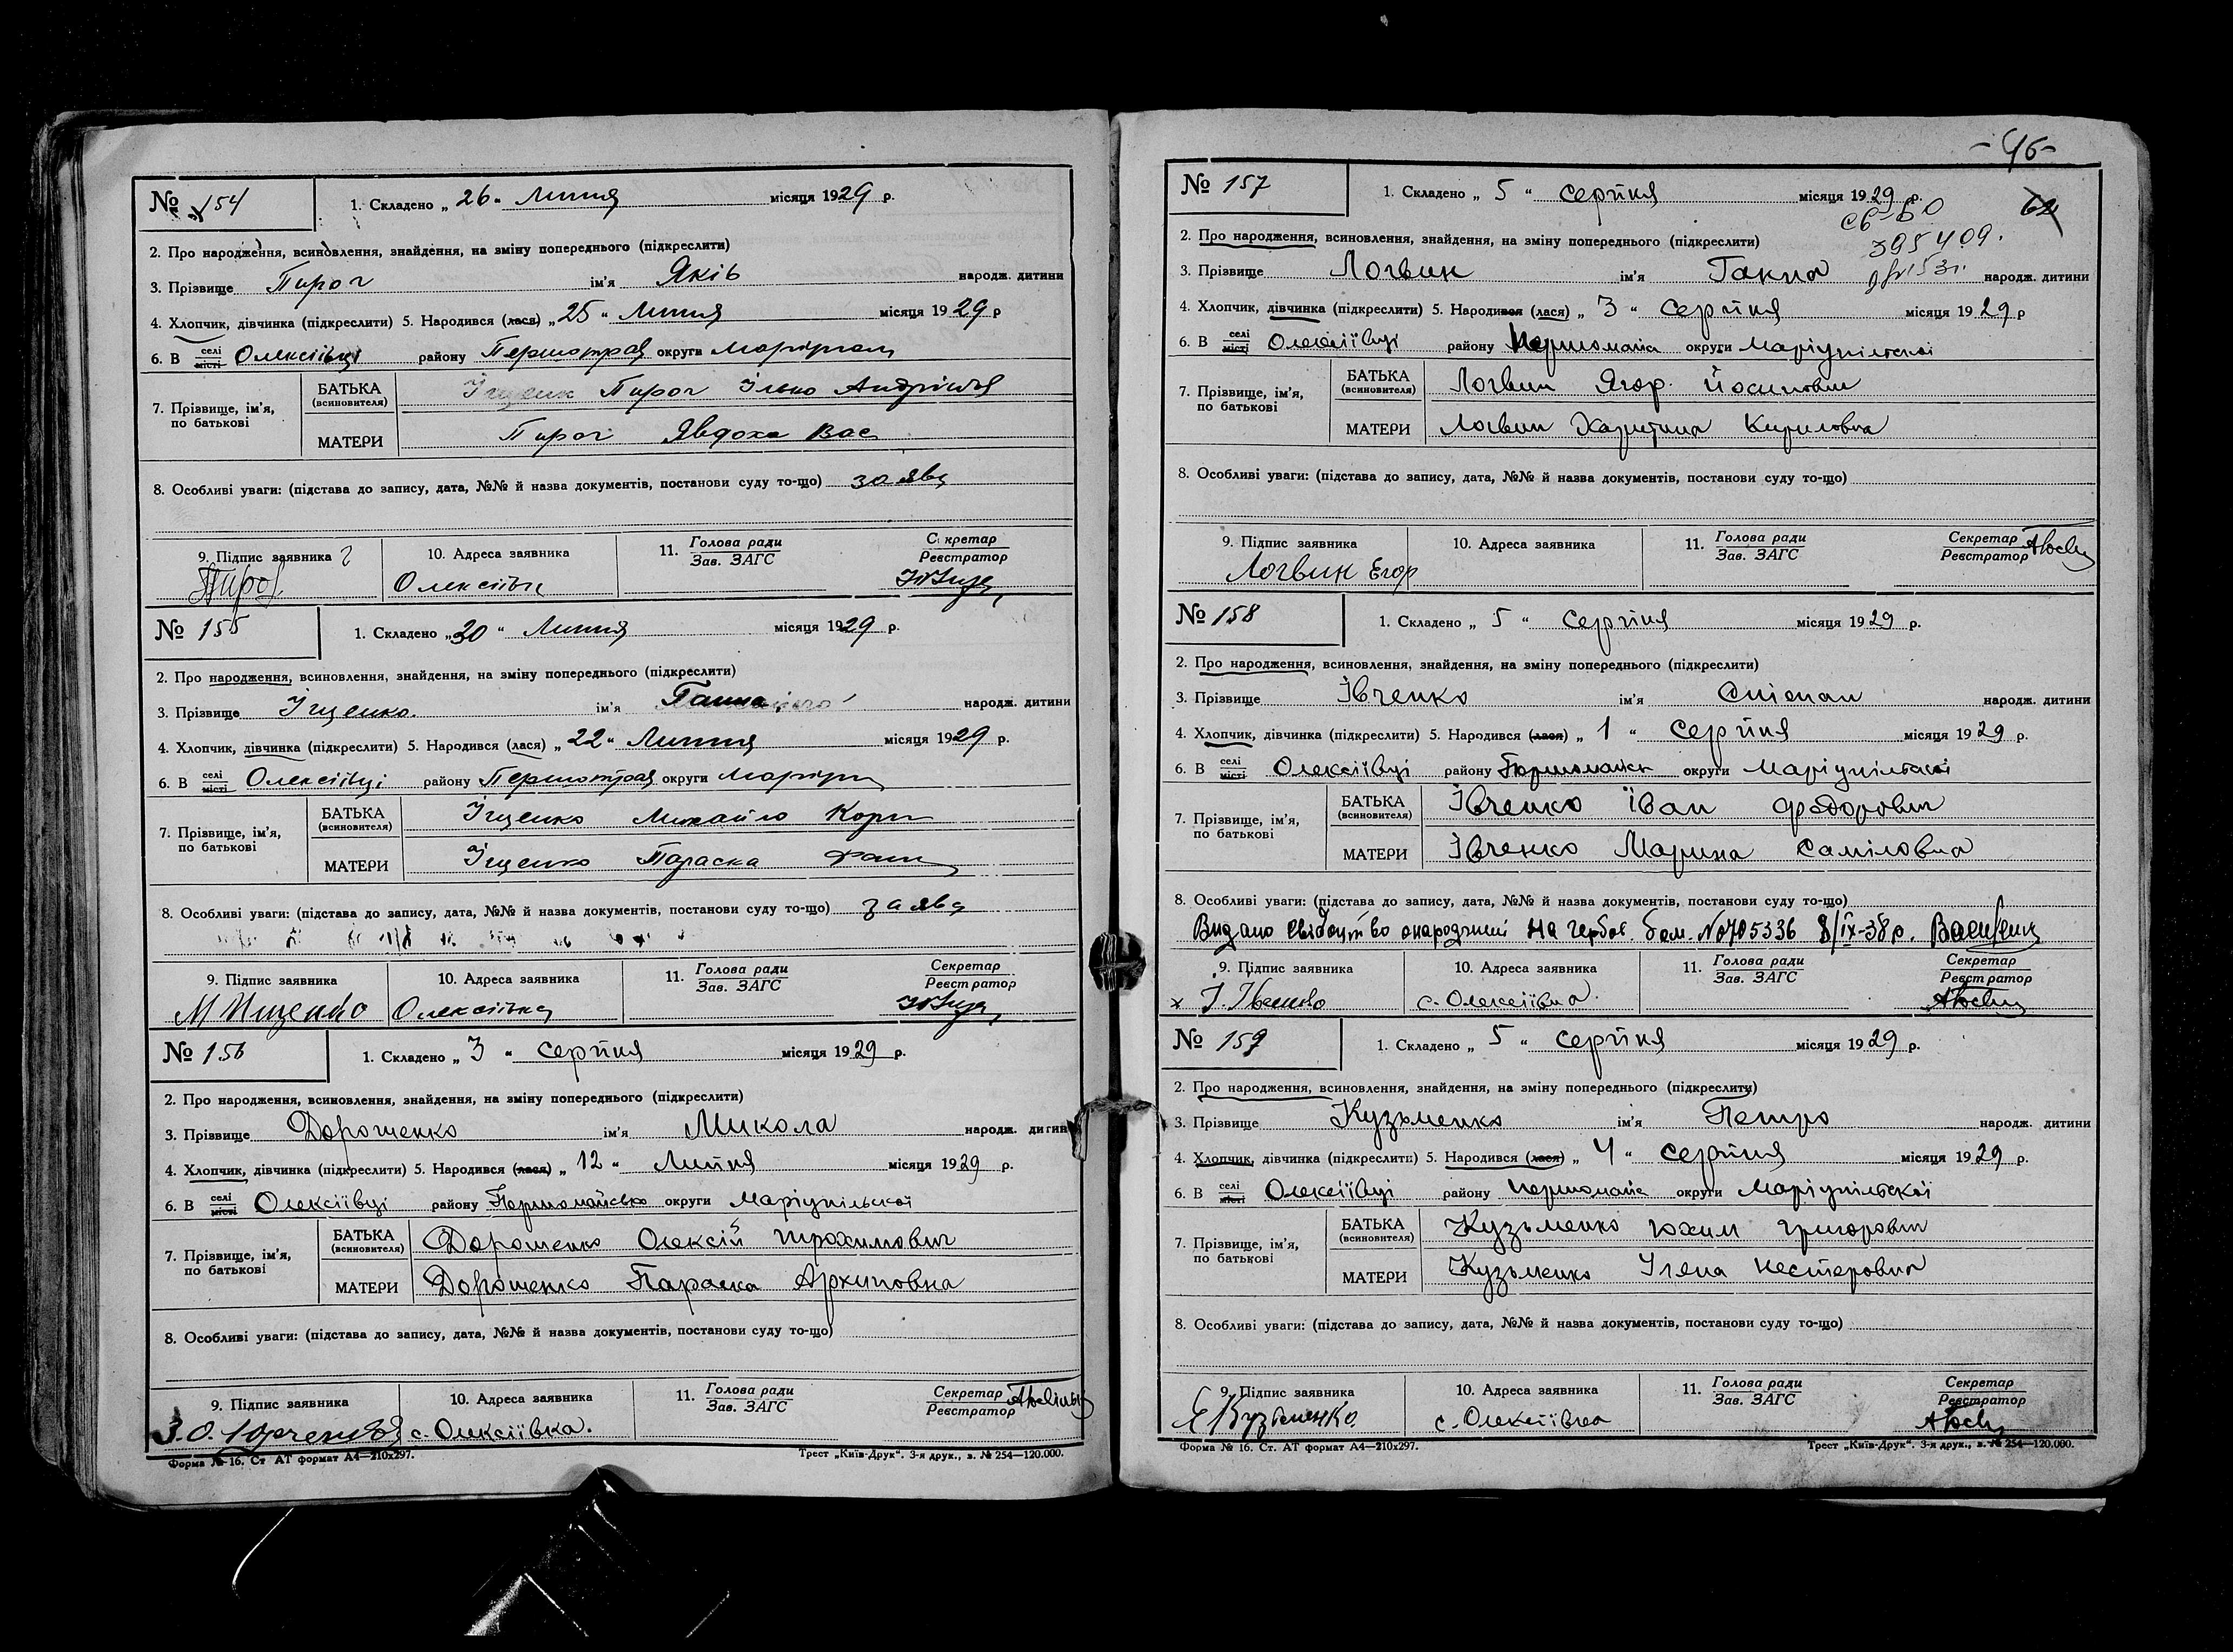 № 154
1. Складено „ 26 “ Липня місяця 1929 р.
2. Про народження, всиновлення, знайдення, на зміну попереднього (підкреслити)
3. Прізвище Пирог ім'я Яків народж. дитини
4. Хлопчик, дівчинка (підкреслити) 5. Народився (лася) „ 25 “ Липня місяця 1929 р
6. В селі місті Олексіївці району Першотрав округи Маріуполь
7. Прізвище, ім'я, по батькові
БАТЬКА (всиновителя) Іщенк Пирог Ілько Андріив
МАТЕРИ Пирог Явдоха Вас
8. Особливі уваги: (підстава до запису, дата, №№ й назва документів, постанови суду то-що) заява
9. Підпис заявника 10. Адреса заявника 11. Голова ради Зав. ЗАГС Секретар Реєстратор
Пирог Олексіївк
№ 155
1. Складено „ 30 “ Липня місяця 1929 р.
2. Про народження, всиновлення, знайдення, на зміну попереднього (підкреслити)
3. Прізвище Іщенко. ім'я Ганна народж. дитини
4. Хлопчик, дівчинка (підкреслити) 5. Народився (лася) „ 22 “ Липня місяця 1929 р.
6. В селі місті Олексіївці району Першотрав округи Маріуп
7. Прізвище, ім'я, по батькові
БАТЬКА (всиновителя) Іщенко Михайло Корн
МАТЕРИ Іщенко Параска
8. Особливі уваги: (підстава до запису, дата, №№ й назва документів, постанови суду то-що) заява
9. Підпис заявника 10. Адреса заявника 11. Голова ради Зав. ЗАГС Секретар Реєстратор
М Ищенко Олексіївка
№ 156
1. Складено „ 3 “ серпня місяця 1929 р.
2. Про народження, всиновлення, знайдення, на зміну попереднього (підкреслити)
3. Прізвище Дорошенко ім'я Микола народж. дитин
4. Хлопчик, дівчинка (підкреслити) 5. Народився (лася) „ 12 “ Липня місяця 1929 р.
6. В селі місті Олексіївці району Першомайсько округи Маріупільської
7. Прізвище, ім'я, по батькові
БАТЬКА (всиновителя) Дорошенко Олексій Трохимович
МАТЕРИ Дорошенко Параска Архиповна
8. Особливі уваги: (підстава до запису, дата, №№ й назва документів, постанови суду то-що)
9. Підпис заявника 10. Адреса заявника 11. Голова ради Зав. ЗАГС Секретар Реєстратор
с. Олексіївка.
Форма № 16. Ст АТ формат А4—210х297. Трест „Київ-Друк“. 3-я друк., з. № 254—120.000.
-46-
№ 157
1. Складено „ 5 “ серпня місяця 1929 р.
св-во
395409.
2. Про народження, всиновлення, знайдення, на зміну попереднього (підкреслити)
3. Прізвище Логвин ім'я Ганна народж. дитини
4. Хлопчик, дівчинка (підкреслити) 5. Народився (лася) „ 3 “ серпня місяця 1929 р
6. В селі місті Олексіївці району Першомайск округи Маріупільської
7. Прізвище, ім'я, по батькові
БАТЬКА (всиновителя) Логвин Ягор Йосипович
МАТЕРИ Логвин Харитина Кириловна
8. Особливі уваги: (підстава до запису, дата, №№ й назва документів, постанови суду то-що)
9. Підпис заявника 10. Адреса заявника 11. Голова ради Зав. ЗАГС Секретар Реєстратор
Логвин Егор
№ 158
1. Складено „ 5 “ серпня місяця 1929 р.
2. Про народження, всиновлення, знайдення, на зміну попереднього (підкреслити)
3. Прізвище Івченко ім'я Стіопан народж. дитини
4. Хлопчик, дівчинка (підкреслити) 5. Народився (лася) „ 1 “ серпня місяця 1929 р.
6. В селі місті Олексіївці району Першомайск округи Маріупільської
7. Прізвище, ім'я, по батькові
БАТЬКА (всиновителя) Івченко Іван Федорович
МАТЕРИ Івченко Марина Саміловна
8. Особливі уваги: (підстава до запису, дата, №№ й назва документів, постанови суду то-що)
Видано свідоцтво на гербов. бом. №0705336 8/IX-38р.
9. Підпис заявника 10. Адреса заявника 11. Голова ради Зав. ЗАГС Секретар Реєстратор
с. Олексіївка.
№ 159
1. Складено „ 5 “ серпня місяця 1929 р.
2. Про народження, всиновлення, знайдення, на зміну попереднього (підкреслити)
3. Прізвище Кузьменко ім'я Петро народж. дитини
4. Хлопчик, дівчинка (підкреслити) 5. Народився (лася) „ 4 “ серпня місяця 1929 р.
6. В селі місті Олексіївці району Першомайск округи Маріупільської
7. Прізвище, ім'я, по батькові
БАТЬКА (всиновителя) Кузьменко Юхим Григорович
МАТЕРИ Кузьменко Уляна Нестеровна
8. Особливі уваги: (підстава до запису, дата, №№ й назва документів, постанови суду то-що)
9. Підпис заявника 10. Адреса заявника 11. Голова ради Зав. ЗАГС Секретар Реєстратор
Е Кузьменко. с. Олексіївка
Форма № 16. Ст. АТ формат А4—210х297. Трест „Київ-Друк“. 3-я друк., з. № 254—120.000.